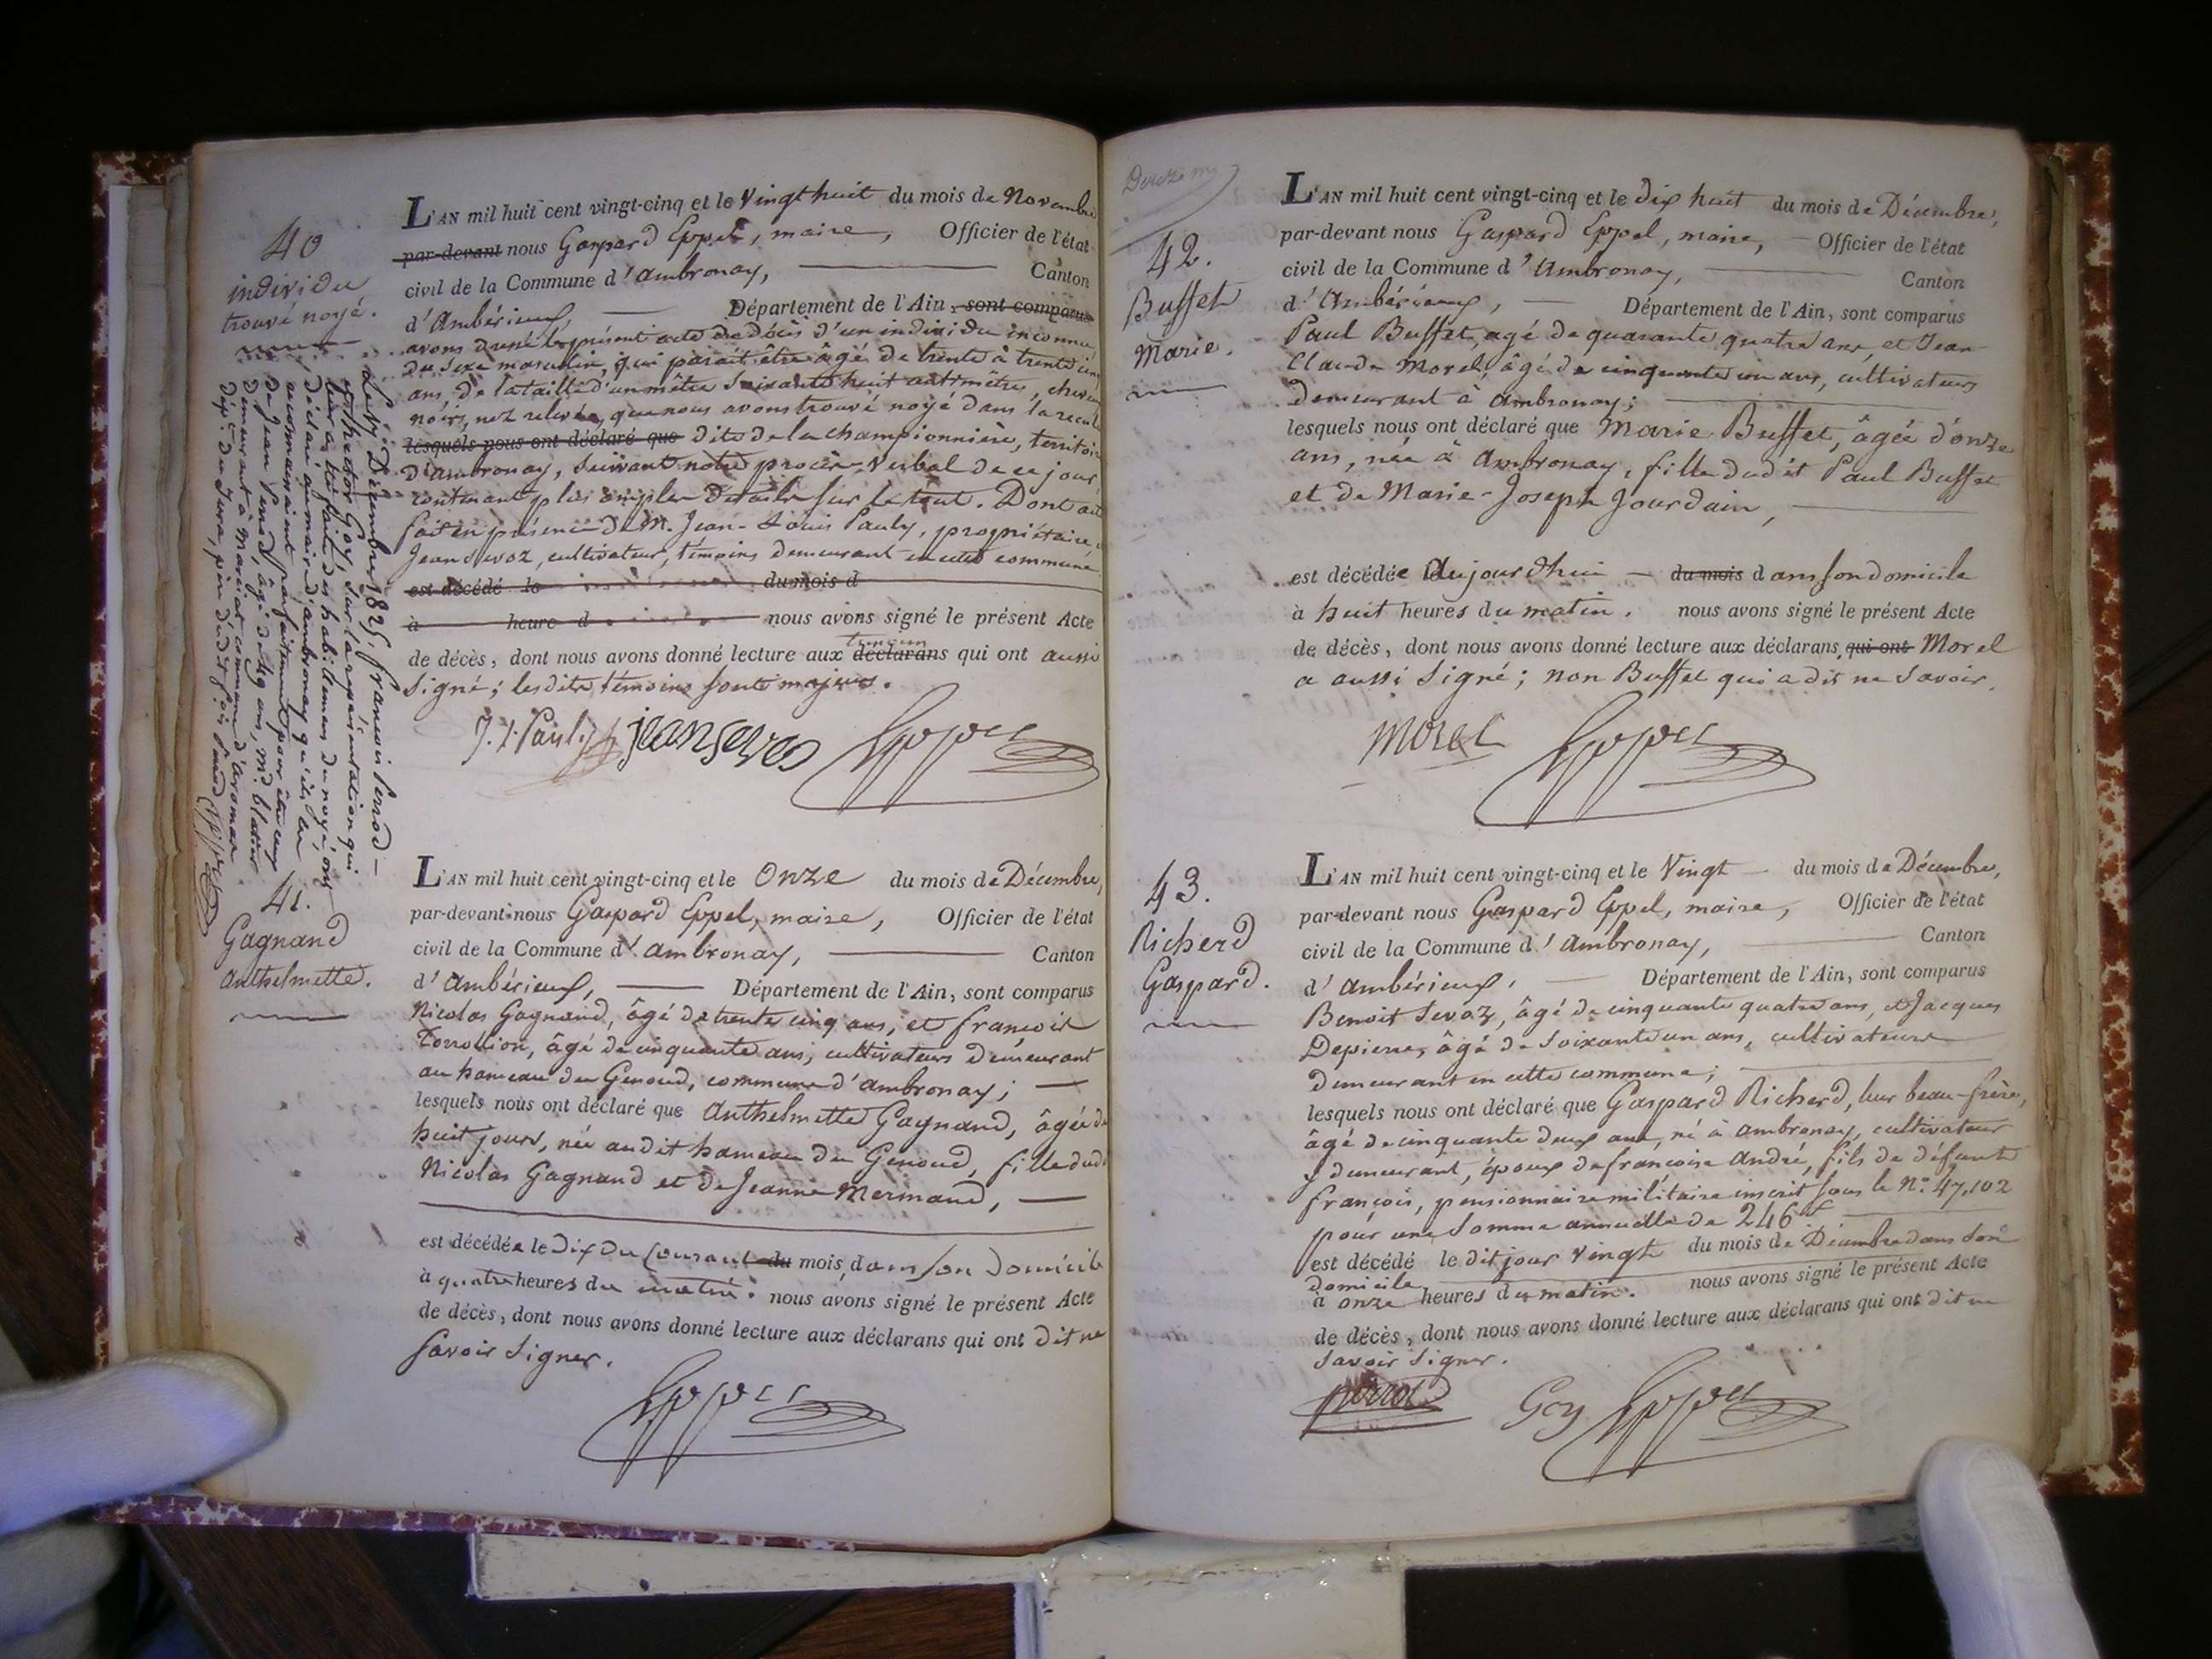 40
individu
trouvé noyé.
L'AN mil huit cent vingt-cinq et le Vingt huit du mois de Novembre
par-devant nous Gaspard Eppel, maire, Officier de l'état
civil de la Commune d'ambronay, Canton
d'Ambérieux, Département de l'Ain, sont comparus
avons dressé le présent acte de décès d'un individu inconnu,
du sexe masculin, qui parait être âgé de trente à trente cinq
ans, de la taille d'un mètre Soixante huit centimètre, cheveux
noirs, nez relevée, que nous avons trouvé noyé dans la
lesquels nous ont déclaré que dite de la championnière, territoire
d'ambronay, suivant notre procès-Verbal de ce jour,
contenant plus amples détails sur le tout. Dont acte
fait en présence de M. Jean-Louis Pauly, propriétaire,
Jean Sevoz, cultivateur, témoins demeurant en cette commune
est décédé le du mois d
à heure d nous avons signé le présent Acte
témoins
de décès, dont nous avons donné lecture aux déclarans qui ont aussi
Signé; lesdits témoins sont majeurs.
J. L. Pauly jean sevoz Eppel
Décembre 1825, françois Perrod
et hector Goy, sur la représentation qui
leur a été faite des habillemens du noyé, ont
déclaré au maire d'ambronay qu'ils les
reconnaissaient parfaitement pour être ceux
de Jean Perrod, âgé de ans, Md. blatier
demeurant à commune d'aromas
dépt. du Jura, père dudit fois. Perrod Eppel
41.
Gagnand
Anthelmette.
L'AN mil huit cent vingt-cinq et le Onze du mois de Décembre,
par-devant nous Gaspard Eppel, maire, Officier de l'état
civil de la Commune d'ambronay, Canton
d'Ambérieux, Département de l'Ain, sont comparus
Nicolas Gagnand, âgé de trente cinq ans, et françois
âgé de cinquante ans, cultivateurs demeurant
au hameau du Genoud, commune d'ambronay;
lesquels nous ont déclaré que Anthelmette Gagnand, âgée de
huit jours, née audit hameau du Genoud, fille dudit
Nicolas Gagnand et de Jeanne Mermand,
est décédée le Dix du Courant du mois, dans son Domicile
à quatre heures du matin. nous avons signé le présent Acte
de décès, dont nous avons donné lecture aux déclarans qui ont dit ne
savoir Signer.
Eppel
42.
Buffet
Marie.
L'AN mil huit cent vingt-cinq et le dix huit du mois de Décembre,
par-devant nous Gaspard Eppel, maire, Officier de l'état
civil de la Commune d'Ambronay, Canton
d'Ambérieux, Département de l'Ain, sont comparus
Paul Buffet, agé de quarante quatre ans, et Jean
Claude Morel, âgé de cinquante un ans, cultivateurs
demeurant à ambronay;
lesquels nous ont déclaré que Marie Buffet, âgée d'onze
ans, née à Ambronay, fille dudit Paul Buffet
et de Marie-Joseph Jourdain,
est décédée aujourd'hui du mois dans son domicile
à huit heures du matin. nous avons signé le présent Acte
de décès, dont nous avons donné lecture aux déclarans qui ont Morel
a aussi Signé; non Buffet qui a dit ne Savoir.
Morel Eppel
43.
Richerd
Gaspard.
L'AN mil huit cent vingt-cinq et le Vingt du mois de Décembre,
par-devant nous Gaspard Eppel, maire, Officier de l'état
civil de la Commune d'ambronay, Canton
d'ambérieux, Département de l'Ain, sont comparus
Benoit Sevoz, âgé de cinquante quatre ans, et Jacques
Depierre, âgé de Soixante un ans, cultivateurs
demeurant en cette commune;
lesquels nous ont déclaré que Gaspard Richerd, leur beau-frère,
âgé de cinquante deux ans, né à ambronay, cultivateur
y demeurant, époux de françoise André, fils de défunt
François, pensionnaire militaire inscrit sous le No. 47,102
pour une Somme annuelle de 246 f
est décédé le dit jour Vingt du mois de Décembre dans son
domicile
à onze heures du matin. nous avons signé le présent Acte
de décès, dont nous avons donné lecture aux déclarans qui ont dit ne
Savoir Signer.
perrod Goy Eppel